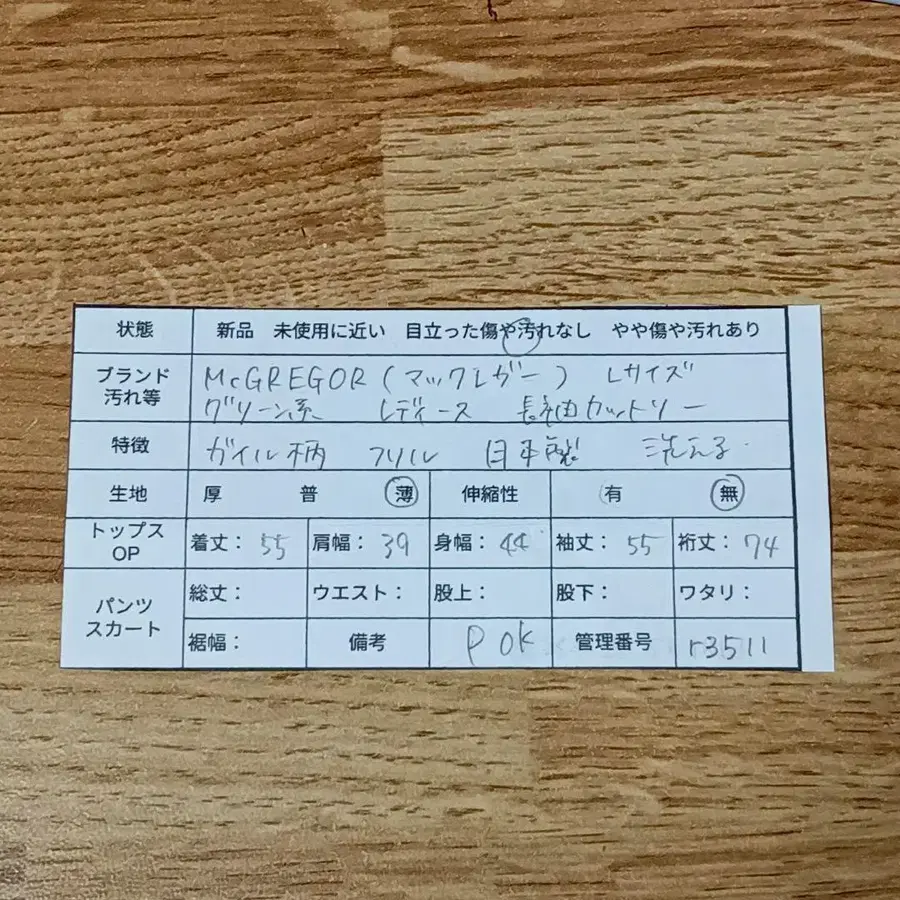 状態 新品 未使用に近い 目立った傷や汚れなし やや傷や汚れあり
ブランド 汚れ等 McGREGOR(マックレガー) Lサイズ
グリーン系 レディース 長袖カットソー
特徴 ガイル柄 フリル 日本製 洗える
生地 厚 普 薄 伸縮性 有 無
トップス OP 着丈: 55 肩幅: 39 身幅: 44 袖丈: 55 裄丈: 74
パンツ スカート 総丈: ウエスト: 股上: 股下: ワタリ:
裾幅: 備考 P OK 管理番号 r3511